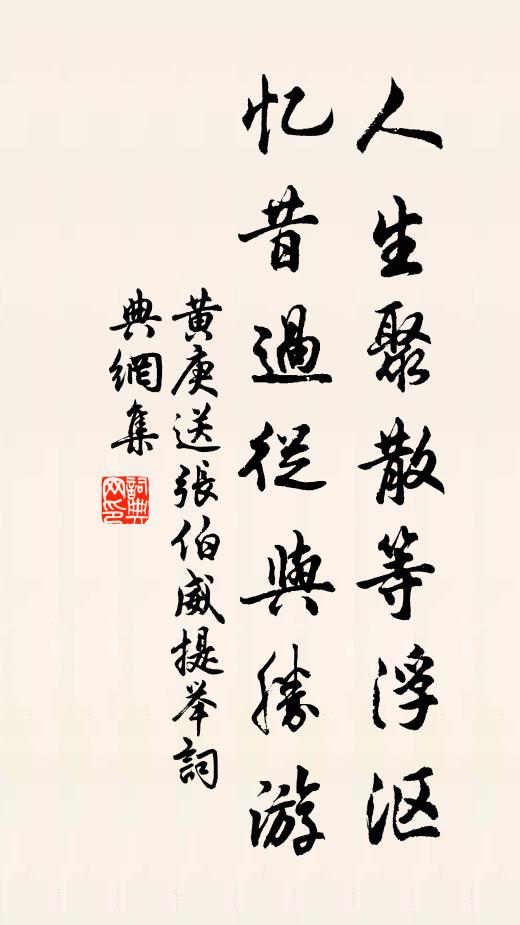 人生聚散等浮沤
忆昔過從與勝游
黄庚送張伯威提举詞
典網集
詞典網印